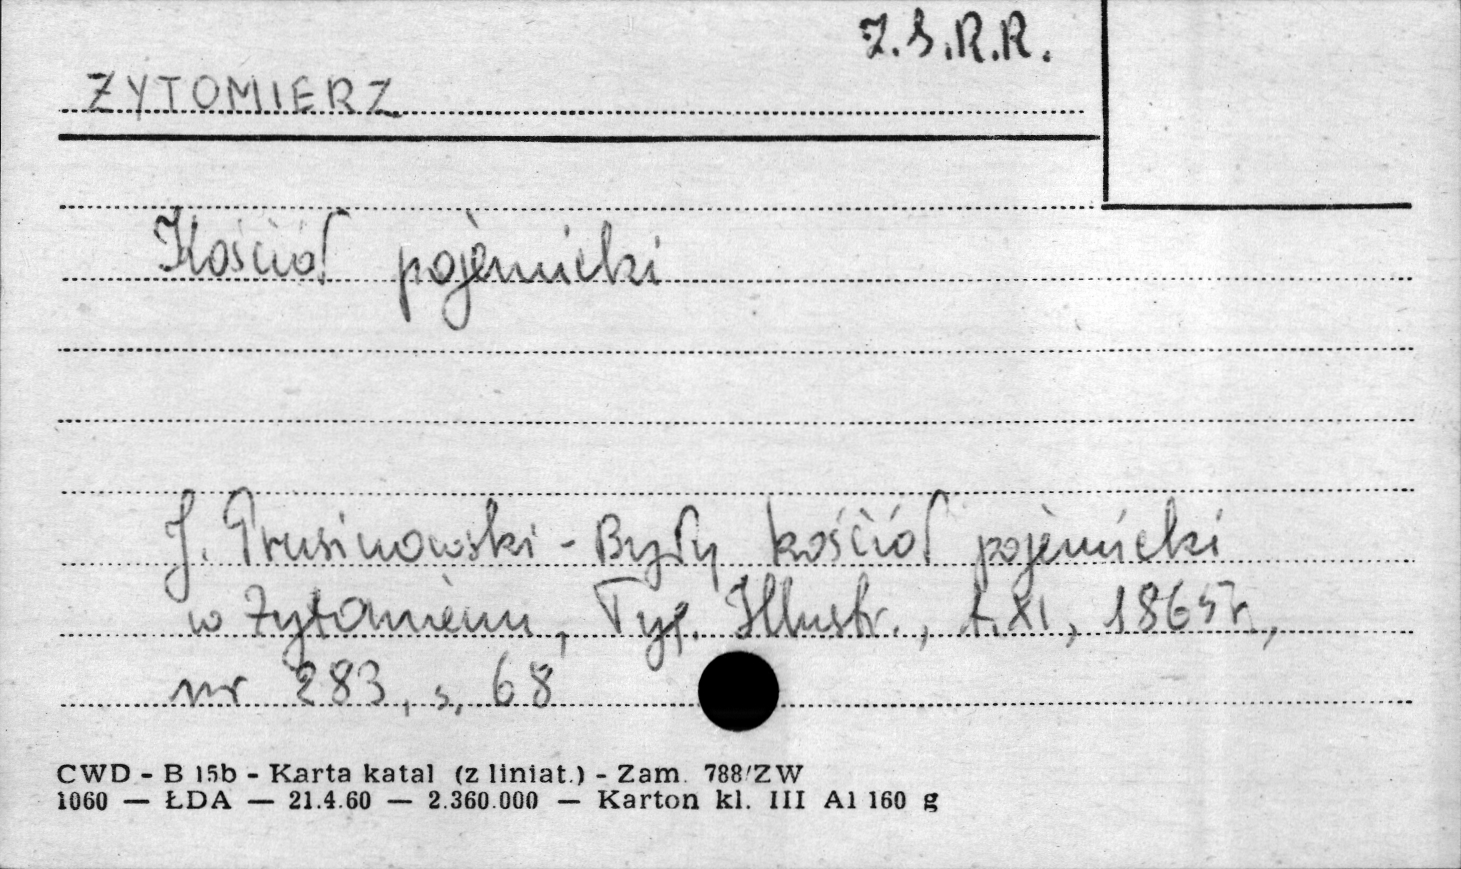 Z.S.R.R.
ŻYTOMIERZ
Kościół pojezuicki
J. Prusinowski - Były kościół pojezuicki
w Żytomierzu, Tyg. Illustr., t. XI, 1865 r.,
nr 283, s. 68
CWD - B 15b - Karta katal (z liniat.) - Zam. 788/ZW
1060 — ŁDA — 21.4.60 — 2.360.000 — Karton kl. III A1 160 g